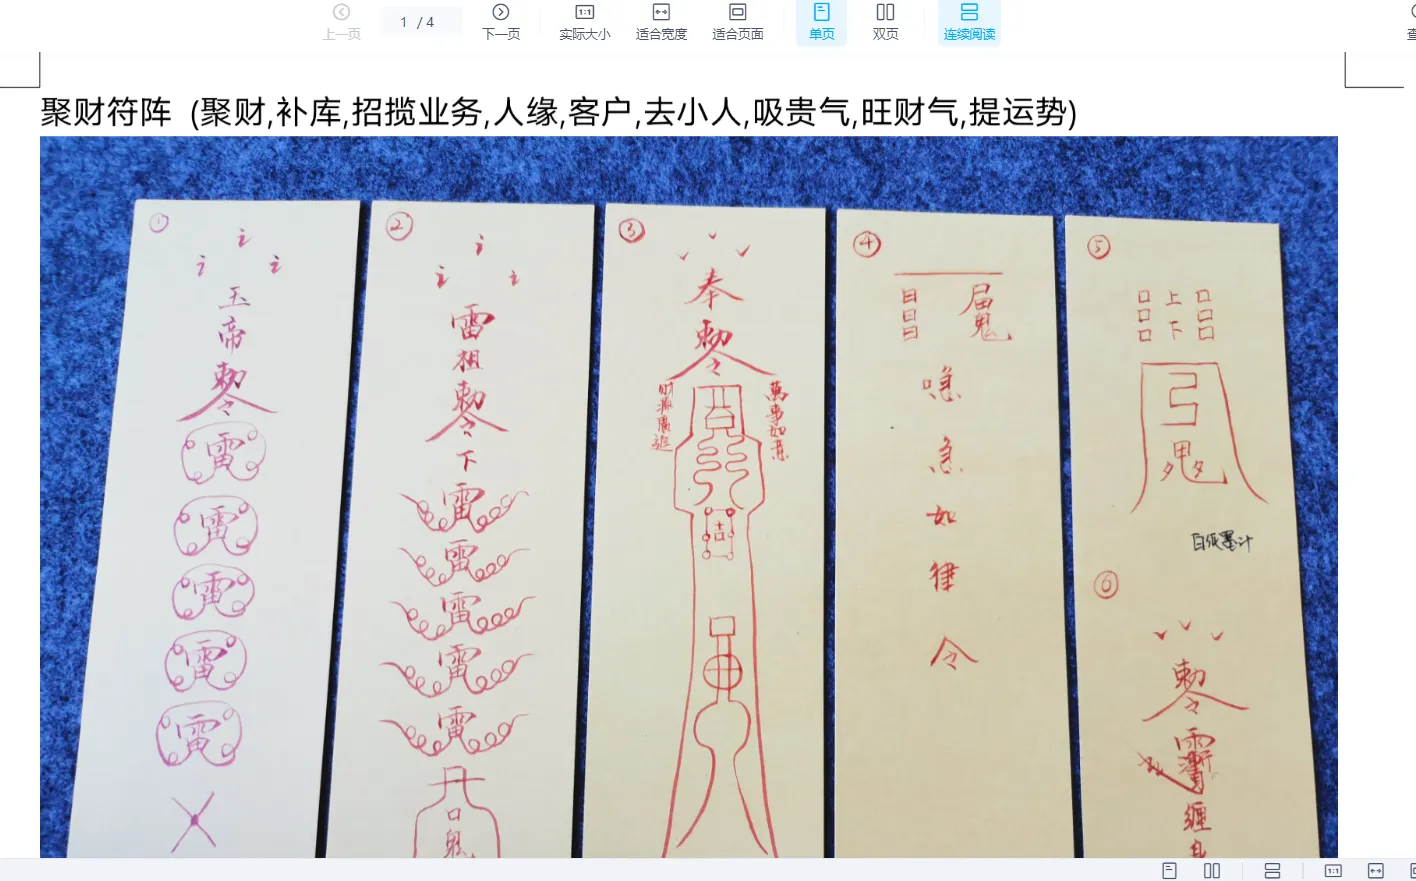 上一页
1 / 4
下一页
实际大小
适合宽度
适合页面
单页
双页
连续阅读
查
聚财符阵 (聚财,补库,招揽业务,人缘,客户,去小人,吸贵气,旺财气,提运势)
①
玉
帝
敕
令
雷
雷
雷
雷
雷
②
雷
祖
敕
令
下
雷
雷
雷
雷
雷
口
鬼
③
奉
敕
令
財源廣進
萬事如意
④
日
日
日
鬼
急
如
律
令
⑤
口 上 口
口 下 口
口 口
弓
鬼
白纸墨汁
⑥
敕
令
缠
身
1:1